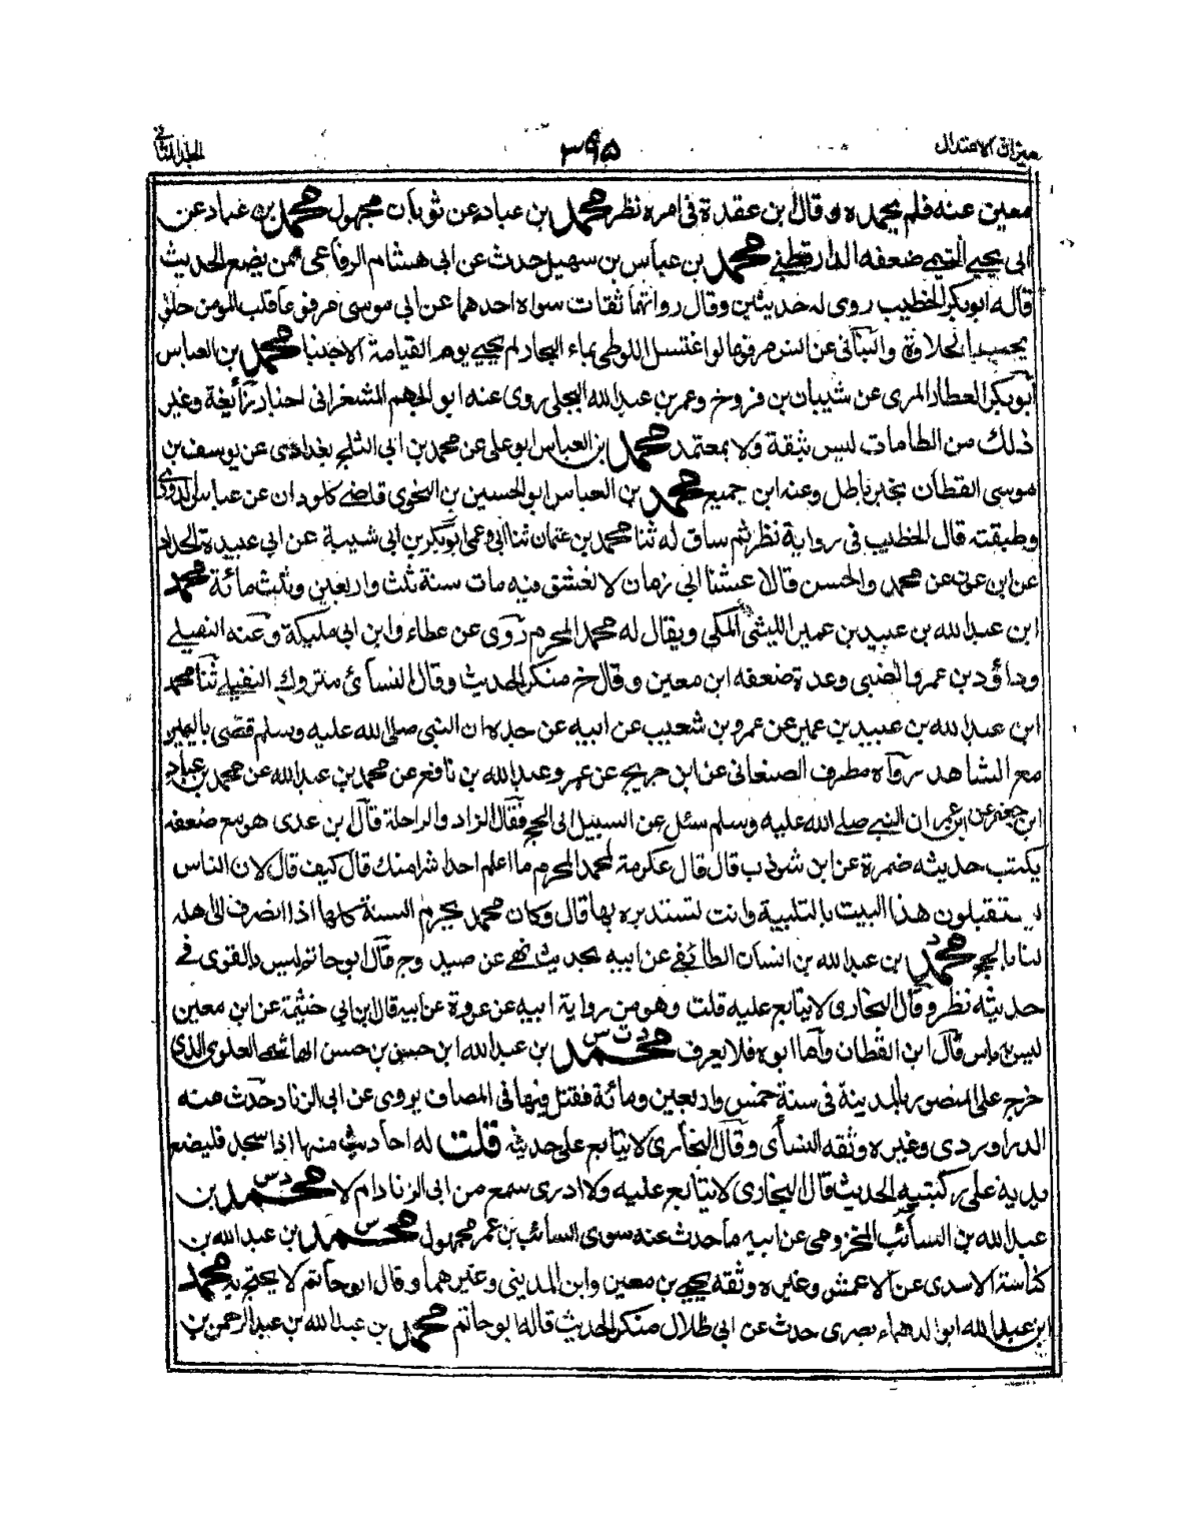 ميزان الاعتدال ٣٩٥ الجلد الثاني
معين عنه فلم يحمده وقال ابن عقدة فى امره نظر محمد بن عباد عن ثوبان مجهول محمد بن عباد عن
ابى يحيى التيمى ضعفه الدارقطنى محمد بن عباس بن سهيل حدث عن ابى هشام الرفاعى ممن يضع الحديث
قاله ابو بكر الخطيب روى له حديثين وقال رواتهما ثقات سواه احدهما عن ابى موسى مرفوعا قلب المومن حلو
يحب الحلاوة والثانى عن انس مرفوعا لو اغتسل اللوطى بماء البحار لم يجيى يوم القيامة الا جنبا محمد بن العباس
ابو بكر العطار المرى عن شيبان بن فروخ وعمر بن عبد الله البجلى روى عنه ابو الجهم الشغرانى اخبار زائغة وغير
ذلك من الطامات ليس بثقة ولا بمعتمد محمد بن العباس ابو على عن محمد بن ابى الثلج بغدادى عن يوسف بن
موسى القطان بخبر باطل وعنه ابن جميع محمد بن العباس ابو الحسين بن النحوى قاضى كلوذان عن عباس الدورى
وطبقته قال الخطيب فى رواية نظر ثم ساق له ثنا محمد بن عثمان ثنا ابى وعمى ابو بكر بن ابى شيبة عن ابى عبيدة الحداد
عن ابن عون عن محمد والحسن قالا عشنا الى زمان لا نعشق فيه مات سنة ثلث واربعين وثلث مائة محمد
ابن عبد الله بن عبيد بن عمير الليثى المكى ويقال له محمد المحرم روى عن عطاء وابن ابى مليكة وعنه النفيلى
وداؤد بن عمرو الضبى وعدة ضعفه ابن معين وقال خ منكر الحديث وقال النسائ متروك النفيلى ثنا محمد
ابن عبد الله بن عبيد بن عمير عن عمرو بن شعيب عن ابيه عن جده ان النبى صلى الله عليه وسلم قضى باليمين
مع الشاهد رواه مطرف الصنعانى عن ابن جريج عن عمرو وعبد الله بن نافع عن محمد بن عبد الله عن محمد بن عباد
ابن جعفر عن ابن عمر ان النبى صلى الله عليه وسلم سئل عن السبيل الى الحج فقال الزاد والراحلة قال ابن عدى هو مع ضعفه
يكتب حديثه ضمرة عن ابن شوذب قال قال عكرمة لمحمد المحرم ما اعلم احدا شرا منك قال كيف قال لان الناس
يستقبلون هذا البيت بالتلبية وانت تستدبره بها قال وكان محمد يحرم السنة كلها اذا انصرف الى اهله
لبا بالحج محمد بن عبد الله بن انسان الطائفى عن ابيه بحديث نهى عن صيد وج قال ابو حاتم ليس بالقوى فى
حديثه نظر وقال البخارى لا يتابع عليه قلت وهو من رواية ابيه عن عروة عن ابيه قال ابن ابى خثيمة عن ابن معين
ليس به باس قال ابن القطان واما ابوه فلا يعرف محمد د ت س بن عبد الله ابن حسن بن حسن الهاشمى العلوى الذى
خرج على المنصور بالمدينة فى سنة خمس واربعين ومائة فقتل فيها فى المصاف يروى عن ابى الزناد حدث عنه
الدراوردى وغيره وثقه النسائى وقال البخارى لا يتابع على حديثه قلت له احاديث منها اذا سجد فليضع
يديه على ركبتيه الحديث قال البخارى لا يتابع عليه ولا ادرى سمع من ابى الزناد ام لا محمد د س بن
عبد الله بن السائب المخزومى عن ابيه ما حدث عنه سوى السائب بن عمر مجهول محمد س بن عبد الله بن
كناسة الاسدى عن الاعمش وغيره وثقه يحيى بن معين وابن المدينى وغيرهما وقال ابو حاتم لا يحتج به محمد
ابن عبد الله ابو الدهماء بصرى حدث عن ابى ظلال منكر الحديث قاله ابو حاتم محمد بن عبد الله بن عبد الرحمن بن